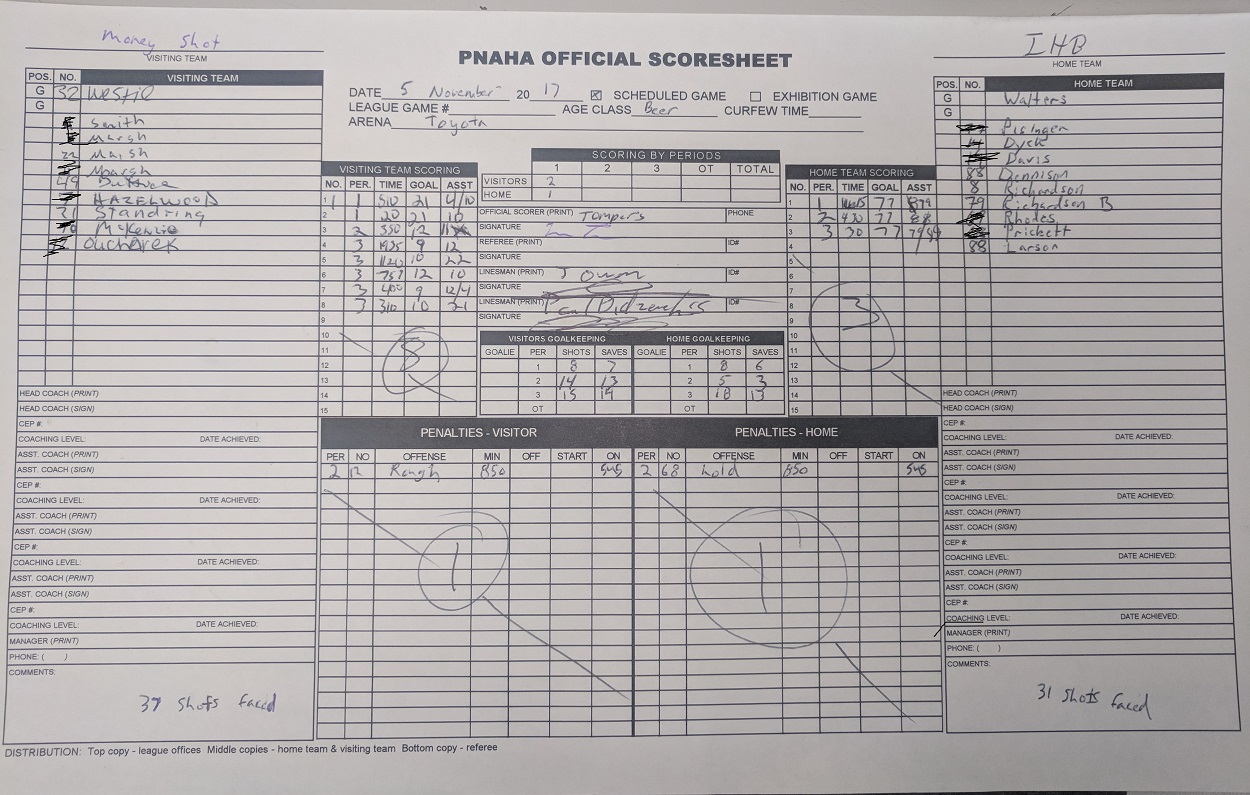 Money Shot
VISITING TEAM
PNAHA OFFICIAL SCORESHEET
IHB
HOME TEAM
DATE 5 November 20 17 ☒ SCHEDULED GAME ☐ EXHIBITION GAME
LEAGUE GAME # AGE CLASS Beer CURFEW TIME
ARENA Toyota
POS. NO. VISITING TEAM
G 32
G
Smith
Marsh
22 Marsh
Marsh
49
HAZELWOOD
21 Standring
McKenzie
Oucharek
POS. NO. HOME TEAM
G Walters
G
Pisinger
Dyck
Davis
88 Dennison
8 Richardson
79 Richardson B
Rhodes
Prickett
88 Larson
VISITING TEAM SCORING
NO. PER. TIME GOAL ASST
1 1 510 21 4/10
2 1 20 21 10
3 2 350 12
4 3 1935 9 12
5 3 1120 10 22
6 3 757 12 10
7 3 400 9 12/4
8 3 310 10 21
9
10
11
12
13
14
15
8
SCORING BY PERIODS
1 2 3 OT TOTAL
VISITORS 2
HOME 1
OFFICIAL SCORER (PRINT) Tompers PHONE
SIGNATURE
REFEREE (PRINT) ID#
SIGNATURE
LINESMAN (PRINT) ID#
SIGNATURE
LINESMAN (PRINT) ID#
SIGNATURE
HOME TEAM SCORING
NO. PER. TIME GOAL ASST
1 1 77 8/79
2 2 420 77 88
3 3 30 77
4
5
6
7
8
9
10
11
12
13
14
15
3
VISITORS GOALKEEPING HOME GOALKEEPING
GOALIE PER SHOTS SAVES GOALIE PER SHOTS SAVES
1 8 7 1 8 6
2 14 13 2 5 3
3 15 14 3 18 13
OT OT
PENALTIES - VISITOR PENALTIES - HOME
PER NO OFFENSE MIN OFF START ON PER NO OFFENSE MIN OFF START ON
2 12 Rough 850 545 2 68 hold 850 545
1 1
HEAD COACH (PRINT)
HEAD COACH (SIGN)
CEP #:
COACHING LEVEL: DATE ACHIEVED:
ASST. COACH (PRINT)
ASST. COACH (SIGN)
CEP #:
COACHING LEVEL: DATE ACHIEVED:
ASST. COACH (PRINT)
ASST. COACH (SIGN)
CEP #:
COACHING LEVEL: DATE ACHIEVED:
ASST. COACH (PRINT)
ASST. COACH (SIGN)
CEP #:
COACHING LEVEL: DATE ACHIEVED:
MANAGER (PRINT)
PHONE: ( )
COMMENTS:
37 shots faced
HEAD COACH (PRINT)
HEAD COACH (SIGN)
CEP #:
COACHING LEVEL: DATE ACHIEVED:
ASST. COACH (PRINT)
ASST. COACH (SIGN)
CEP #:
COACHING LEVEL: DATE ACHIEVED:
ASST. COACH (PRINT)
ASST. COACH (SIGN)
CEP #:
COACHING LEVEL: DATE ACHIEVED:
ASST. COACH (PRINT)
ASST. COACH (SIGN)
CEP #:
COACHING LEVEL: DATE ACHIEVED:
MANAGER (PRINT)
PHONE: ( )
COMMENTS:
31 shots faced
DISTRIBUTION: Top copy - league offices Middle copies - home team & visiting team Bottom copy - referee